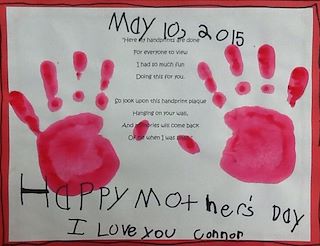 May 10, 2015
"Here my handprints are done
For everyone to view
I had so much fun
Doing this for you.
So look upon this handprint plaque
Hanging on your wall,
And memories will come back
Of me when I was small."
HAPPY MOTher's DAY
I LOVE YOU connor